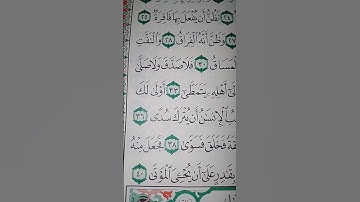 ٢٤ تَظُنُّ أَن يُفْعَلَ بِهَا فَاقِرَةٌ ٢٥
٢٧ وَظَنَّ أَنَّهُ ٱلْفِرَاقُ ٢٨ وَٱلْتَفَّتِ
ٱلْمَسَاقُ ٣٠ فَلَا صَدَّقَ وَلَا صَلَّىٰ
أَهْلِهِۦ يَتَمَطَّىٰٓ ٣٣ أَوْلَىٰ لَكَ
ٱلْإِنسَٰنُ أَن يُتْرَكَ سُدًى ٣٦
فَخَلَقَ فَسَوَّىٰ ٣٨ فَجَعَلَ مِنْهُ
بِقَٰدِرٍ عَلَىٰٓ أَن يُحْـِۧىَ ٱلْمَوْتَىٰ ٤٠